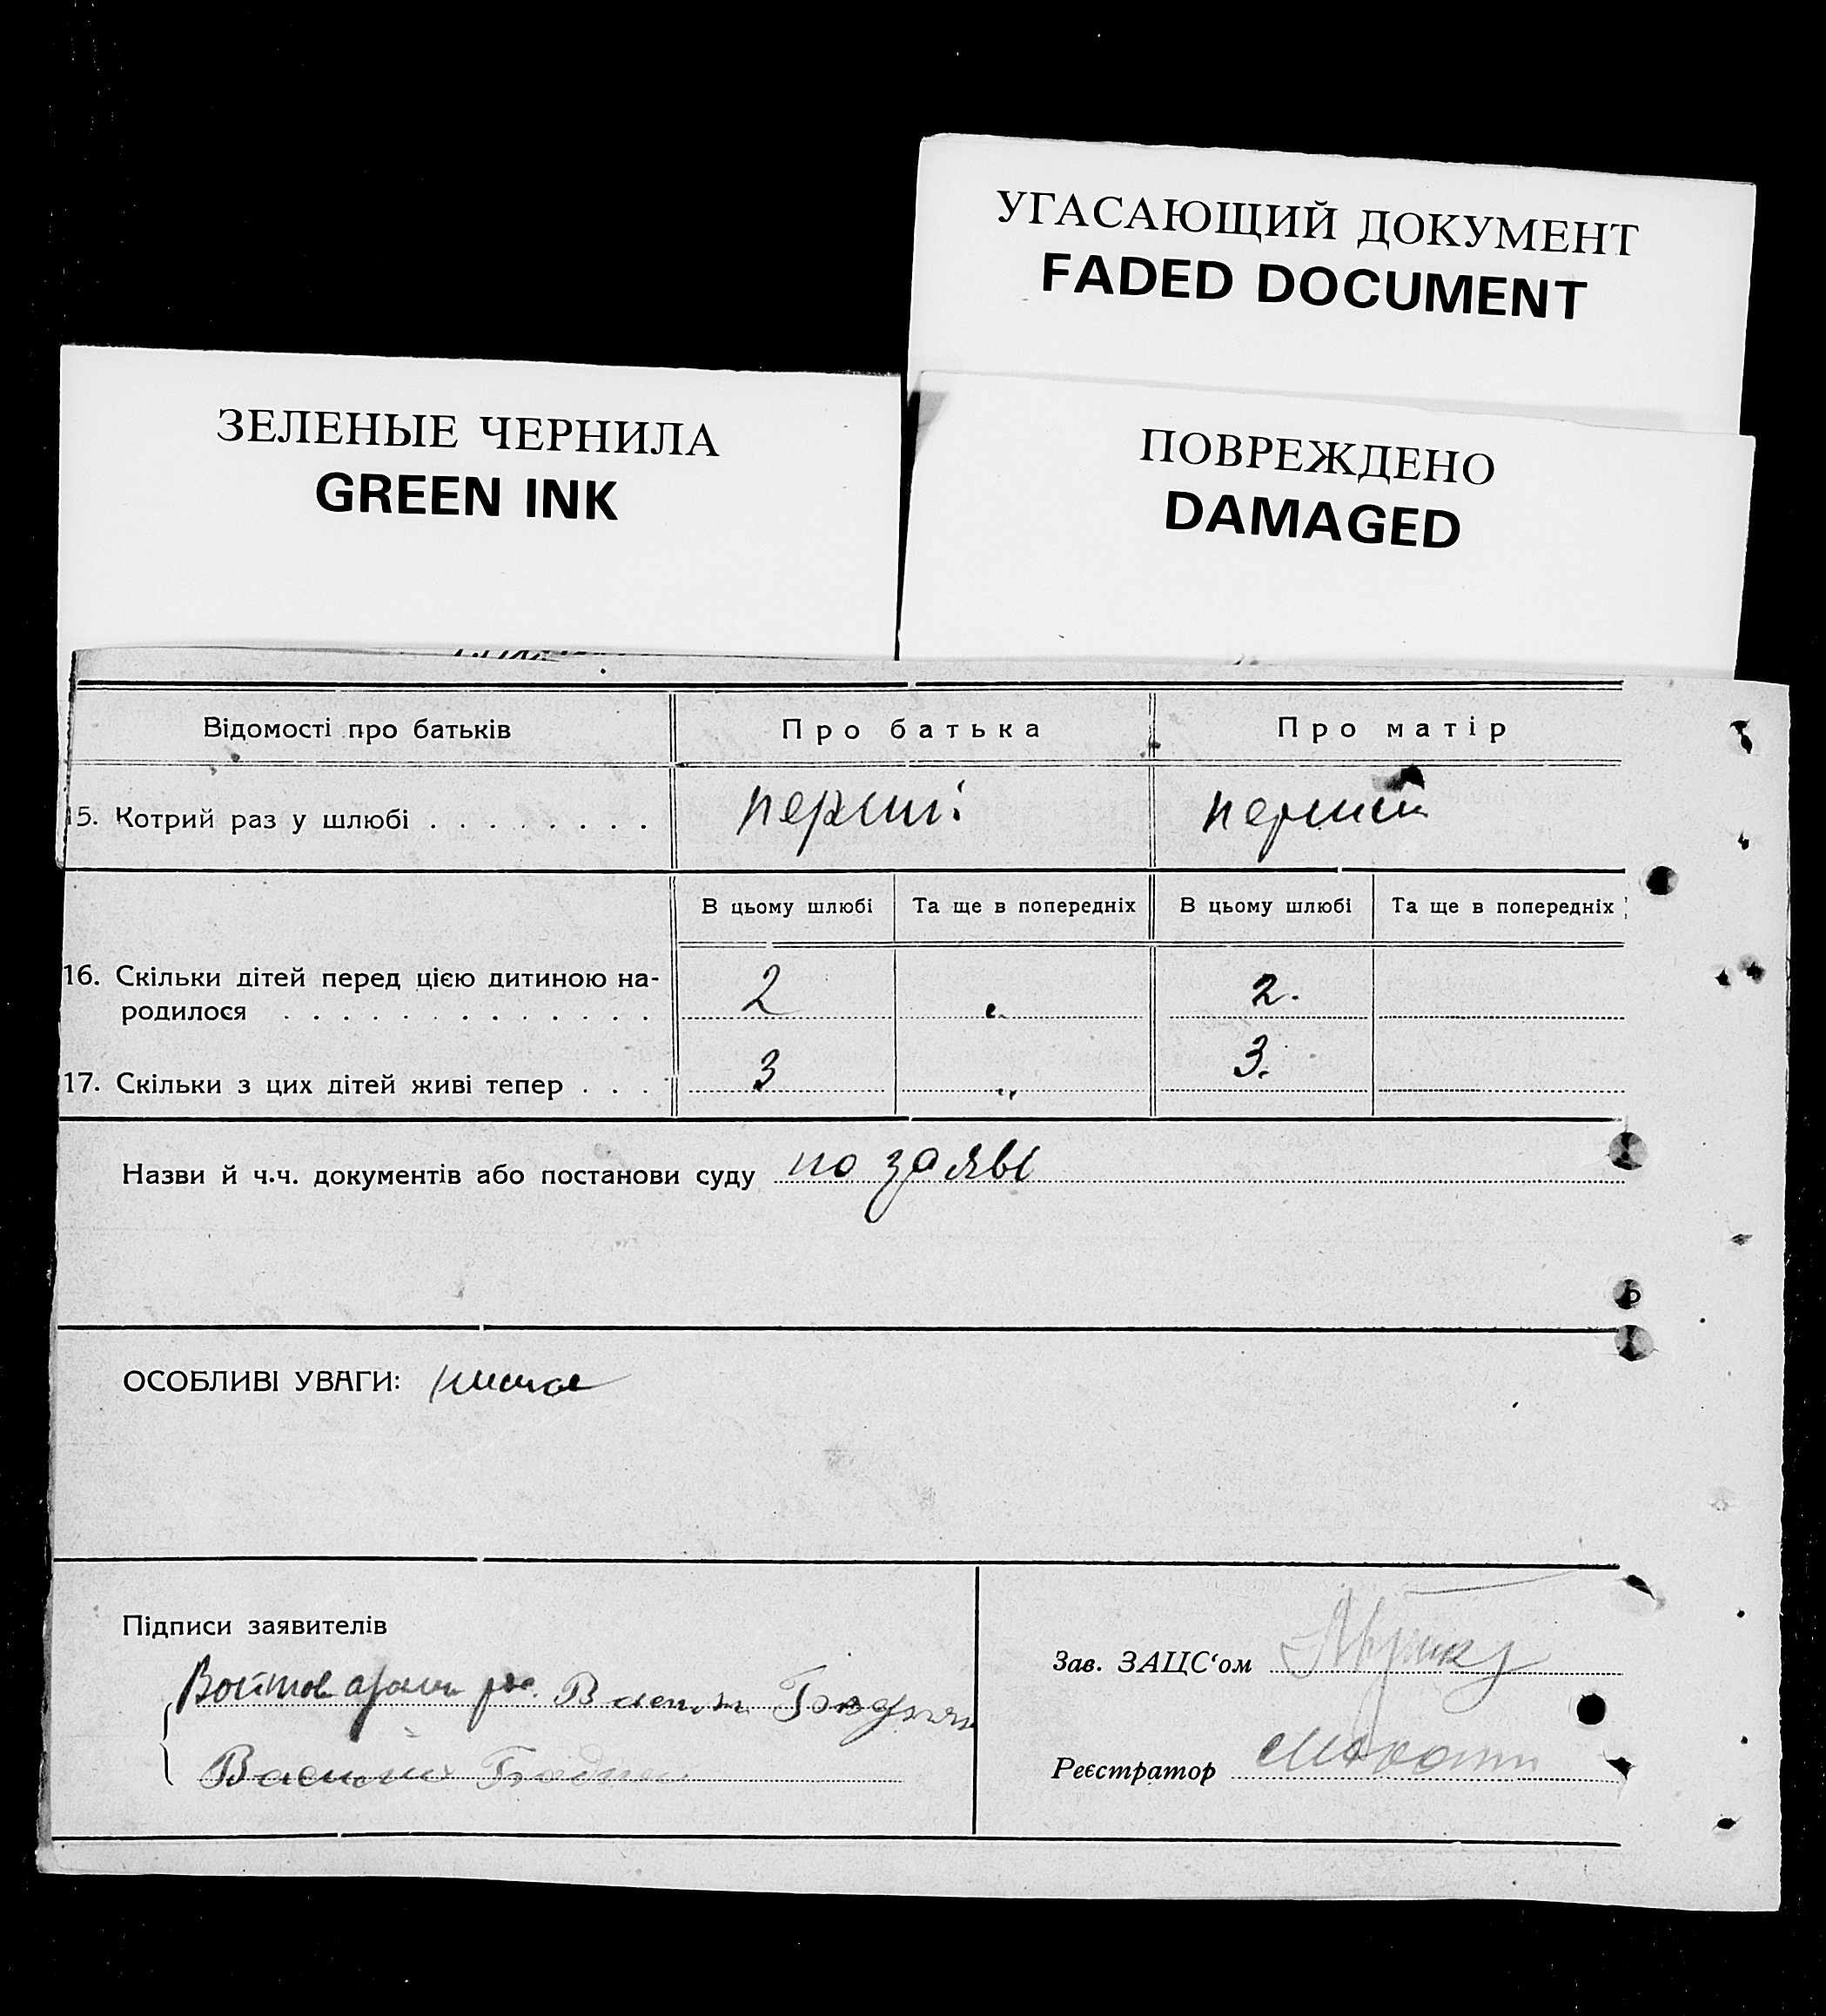 УГАСАЮЩИЙ ДОКУМЕНТ
FADED DOCUMENT
ЗЕЛЕНЫЕ ЧЕРНИЛА
GREEN INK
ПОВРЕЖДЕНО
DAMAGED
Відомості про батьків Про батька Про матір
15. Котрий раз у шлюбі . . . . . . . . перший перший
В цьому шлюбі Та ще в попередніх В цьому шлюбі Та ще в попередніх
16. Скільки дітей перед цією дитиною на-
родилося . . . . . . . . . . . . . 2 2.
17. Скільки з цих дітей живі тепер . . . 3 3.
Назви й ч.ч. документів або постанови суду по заяві
ОСОБЛИВІ УВАГИ:
Підписи заявителів
Зав. ЗАЦС‘ом
Реєстратор